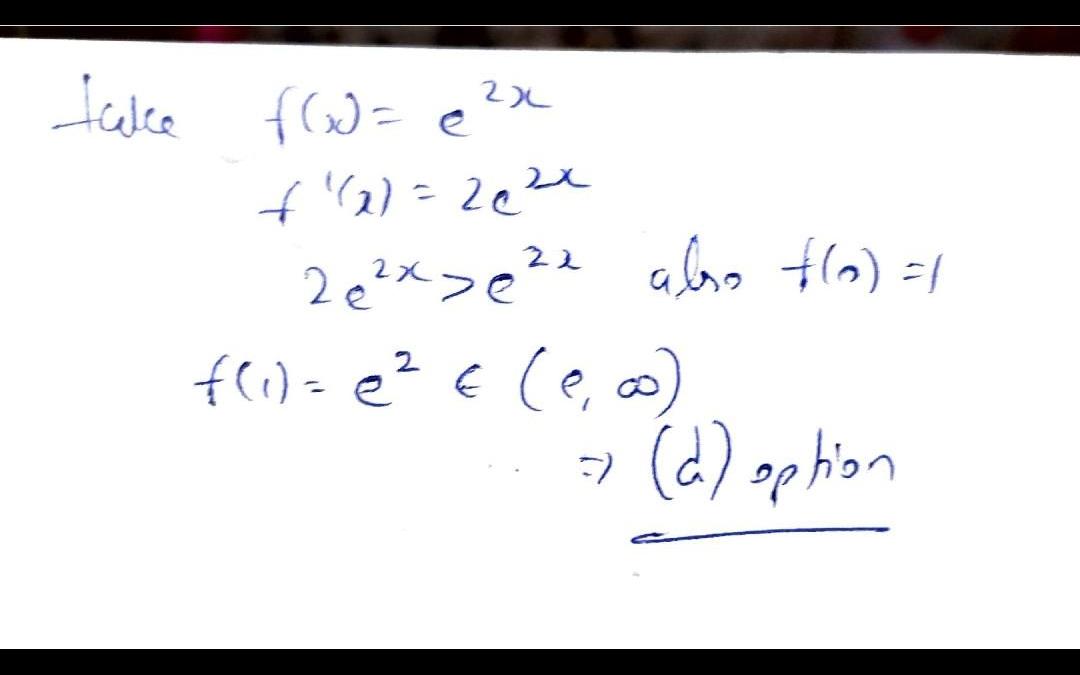 take f(x) = e^{2x}
f'(x) = 2e^{2x}
2e^{2x} > e^{2x} also f(0) = 1
f(1) = e^2 ∈ (e, ∞)
⇒ (d) option